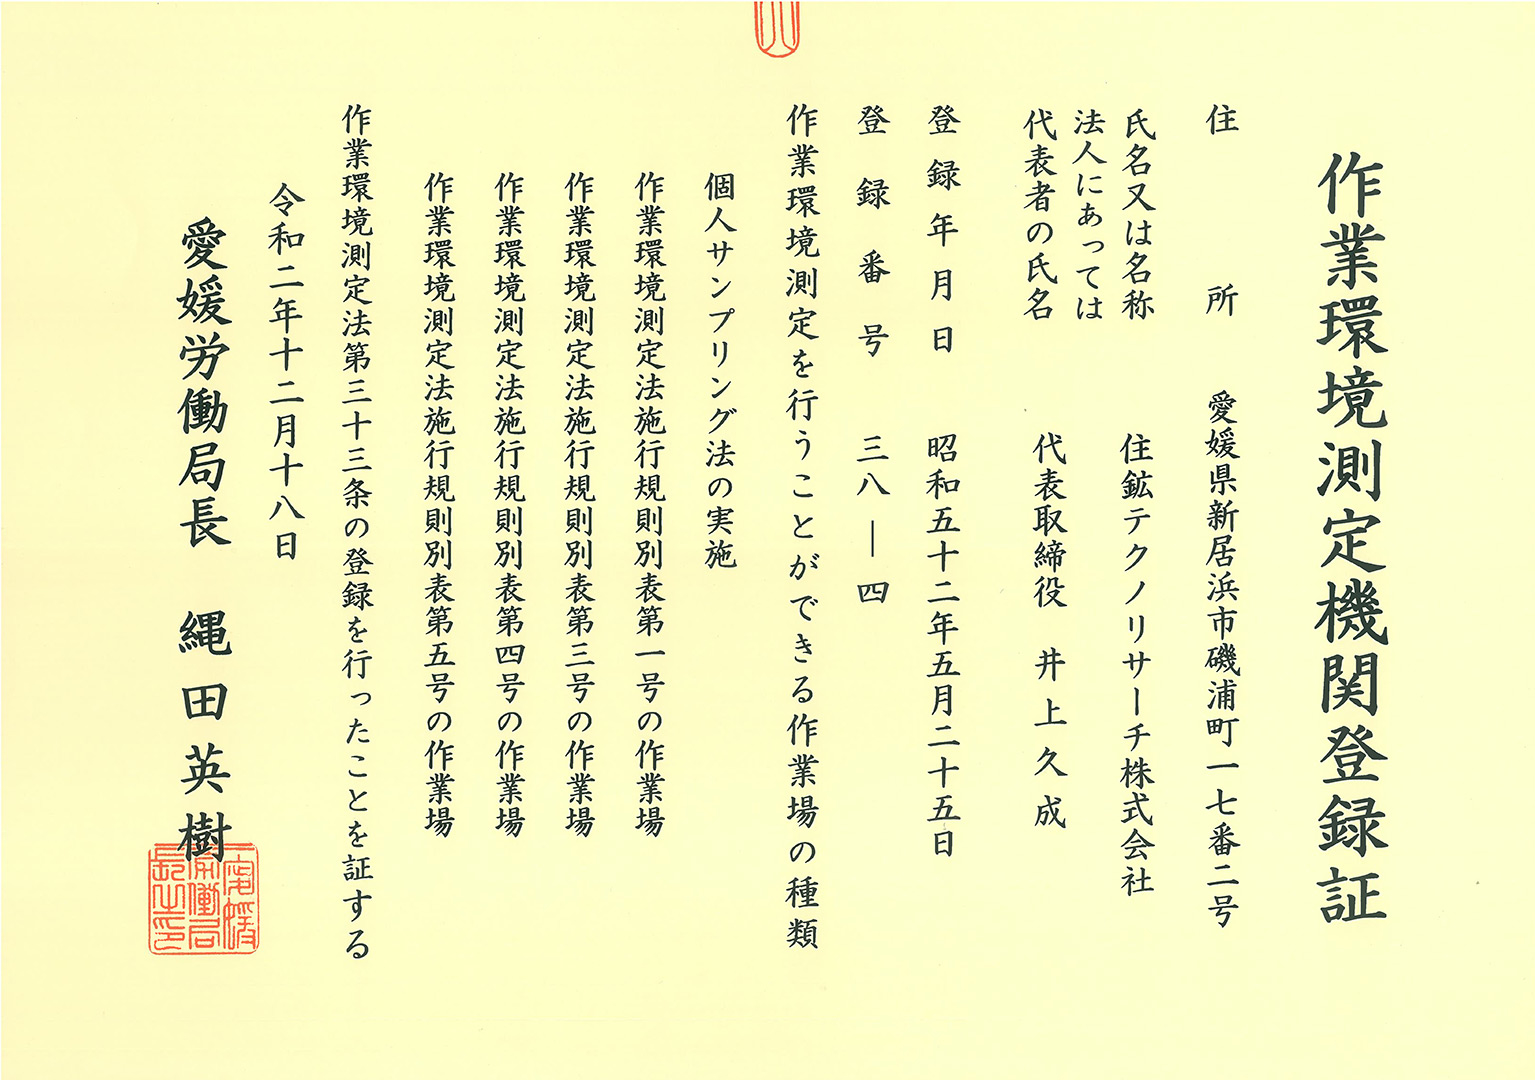 作業環境測定機関登録証
住所 愛媛県新居浜市磯浦町一七番二号
氏名又は名称 住鉱テクノリサーチ株式会社
法人にあっては
代表者の氏名 代表取締役 井上久成
登録年月日 昭和五十二年五月二十五日
登録番号 三八―四
作業環境測定を行うことができる作業場の種類
個人サンプリング法の実施
作業環境測定法施行規則別表第一号の作業場
作業環境測定法施行規則別表第三号の作業場
作業環境測定法施行規則別表第四号の作業場
作業環境測定法施行規則別表第五号の作業場
作業環境測定法第三十三条の登録を行ったことを証する
令和二年十二月十八日
愛媛労働局長 縄田英樹
愛媛労働局長之印